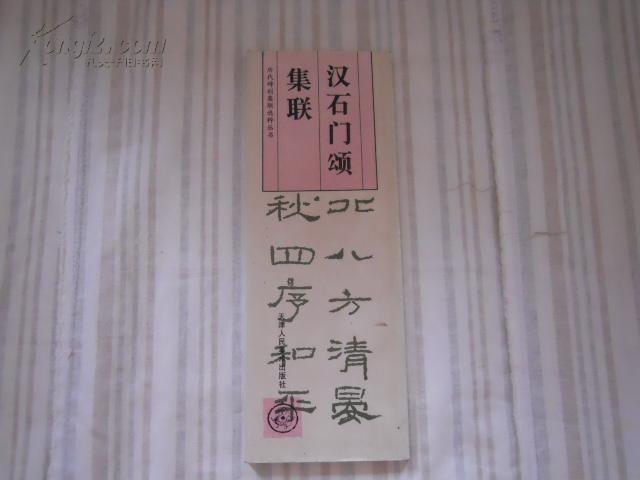 汉石门颂
集联
历代碑刻集联选粹丛书
北八方清晏
秋四序和平
天津人民美术出版社
Kongfz.com
孔夫子旧书网